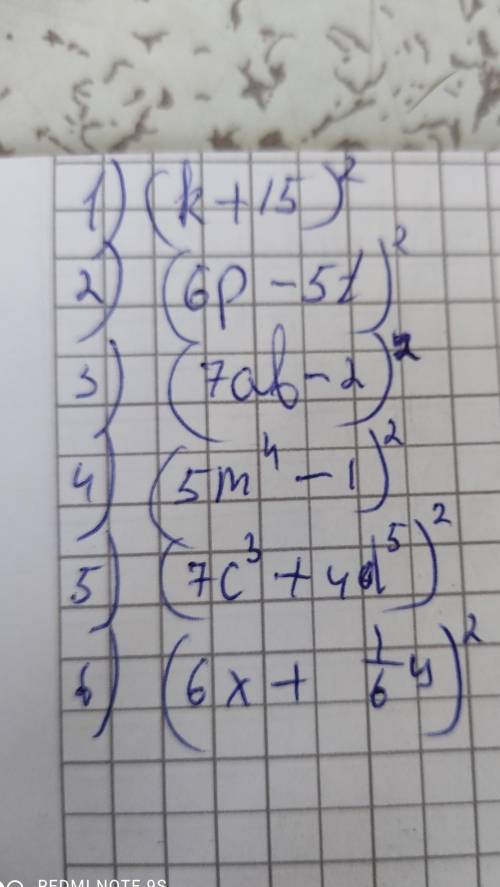 1) (k+15)²
2) (6p-5t)²
3) (7ab-2)²
4) (5m⁴-1)²
5) (7c³+4d⁵)²
6) (6x+1/6y)²
REDMI NOTE 9S